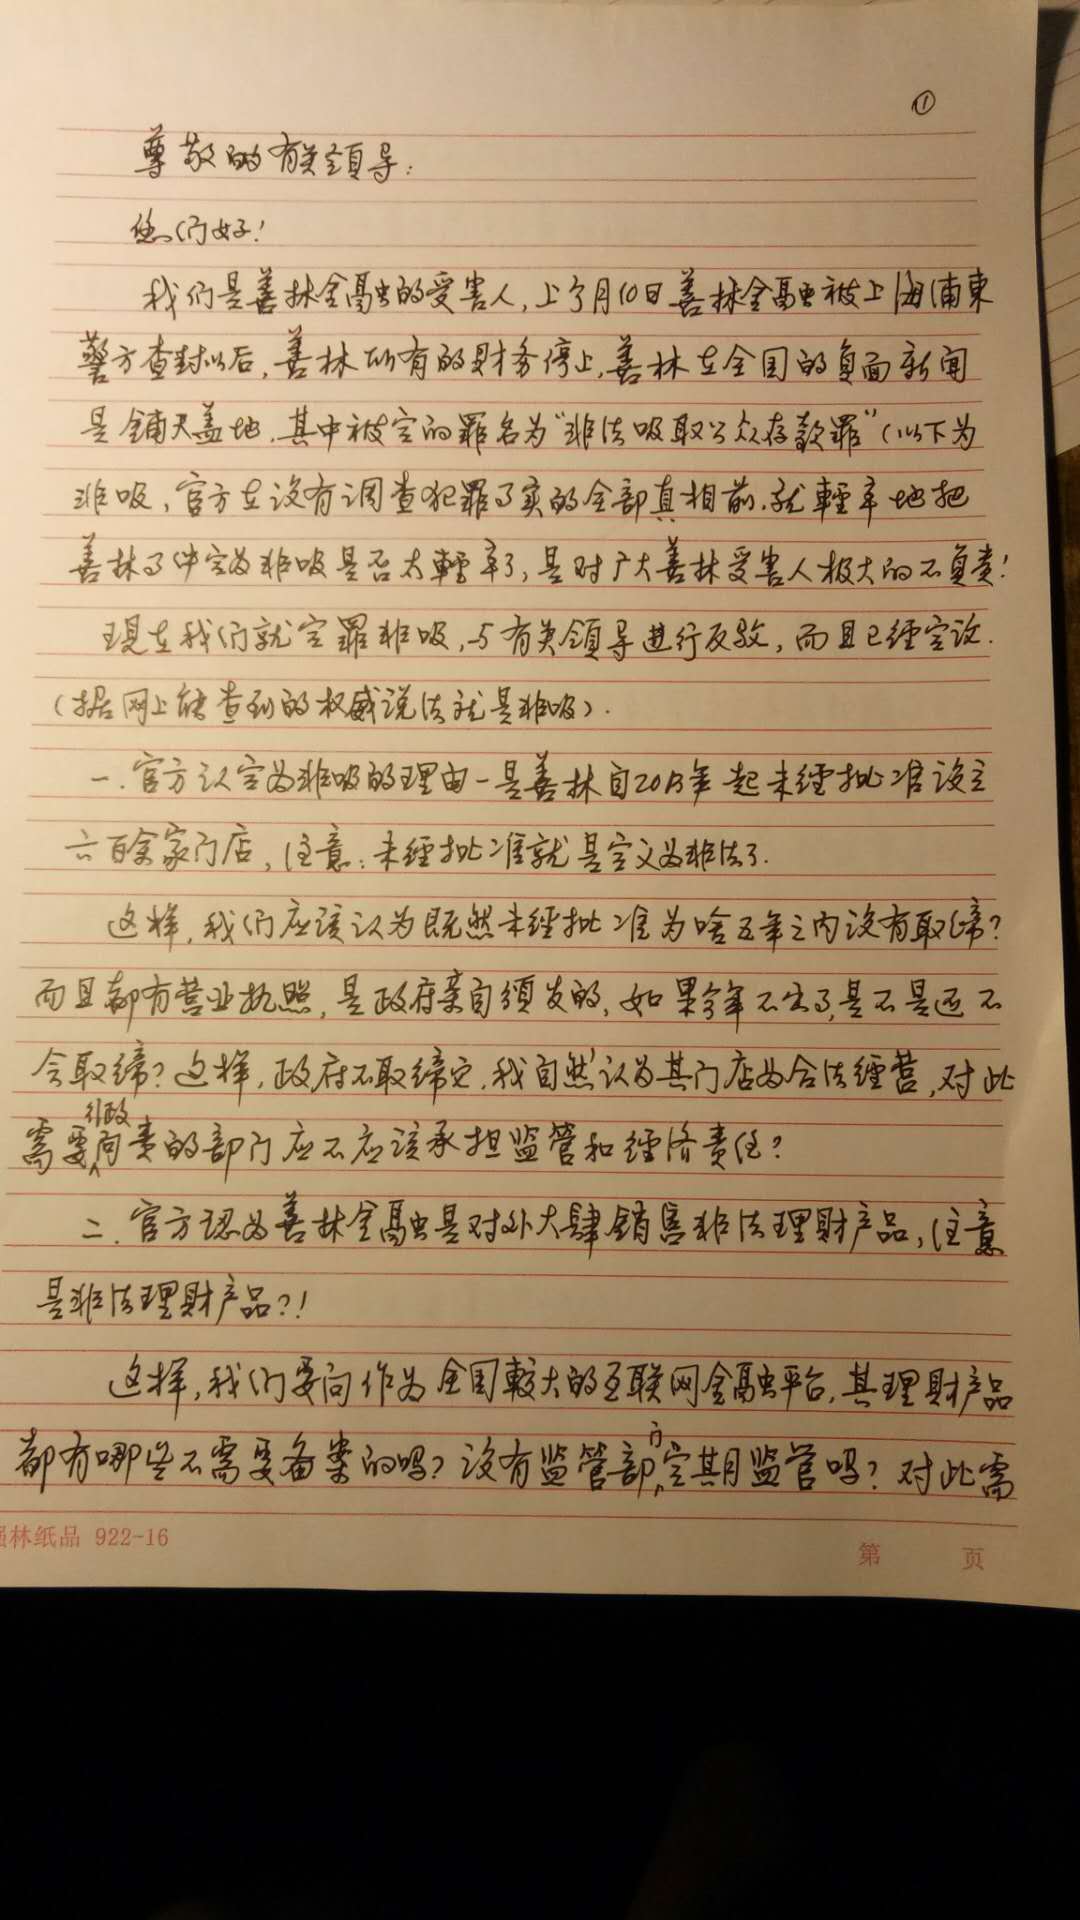 ①
尊敬的有关領导：
您们好！
我们是善林金融的受害人，上个月10日善林金融被上海浦東
警方查封以后，善林所有的財务停止，善林在全国的負面新闻
是鋪天盖地，其中被定的罪名为“非法吸取公众存款罪”（以下为
非吸，官方在没有调查犯罪事实的全部真相前，就輕率地把
善林事件定为非吸是否太輕率了，是对广大善林受害人极大的不負責！
現在我们就定罪非吸，与有关領导進行反驳，而且已經定论．
（据网上能查到的权威说法就是非吸）．
一．官方认定为非吸的理由一是善林自2013年起未經批准设立
六百余家门店，注意：未經批准就是定义为非法了．
这样，我们应该认为既然未經批准为啥五年之内没有取缔？
而且都有营业执照，是政府亲自頒发的，如果今年不出事，是不是还不
会取缔？这样，政府不取缔它，我自然认为其门店为合法經营，对此
需要行政问责的部门应不应该承担监管和經济责任？
二．官方認为善林金融是对外大肆銷售非法理財产品，注意
是非法理財产品？！
这样，我们要问作为全国較大的互联网金融平台，其理財产品
都有哪些不需要备案的吗？没有监管部门定期监管吗？对此需
林纸品 922-16
第 页